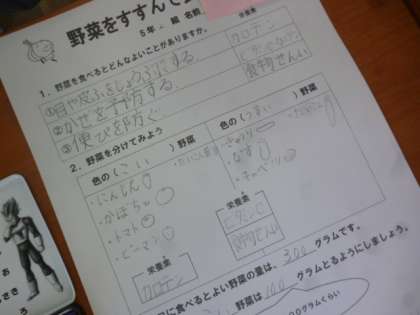 野菜をすすんで
5年 組 名前
栄養素
1. 野菜を食べるとどんなよいことがありますか。
カロテン
①目や皮ふをじょうぶにする。
②かぜを予防する。
食物せんい
③便ぴを防ぐ
2. 野菜を分けてみよう
色の(こい)野菜
色の(うすい)野菜
・にんじん
・かぼちゃ
・トマト
・ピーマン
・きゅうり
・なす
・キャベツ
栄養素
カロテン
栄養素
ビタミンC
食物せんい
に食べるとよい野菜の量は、300グラムです。
野菜は100グラムとるようにしましょう。
00グラムくらい
お
さき
ろ